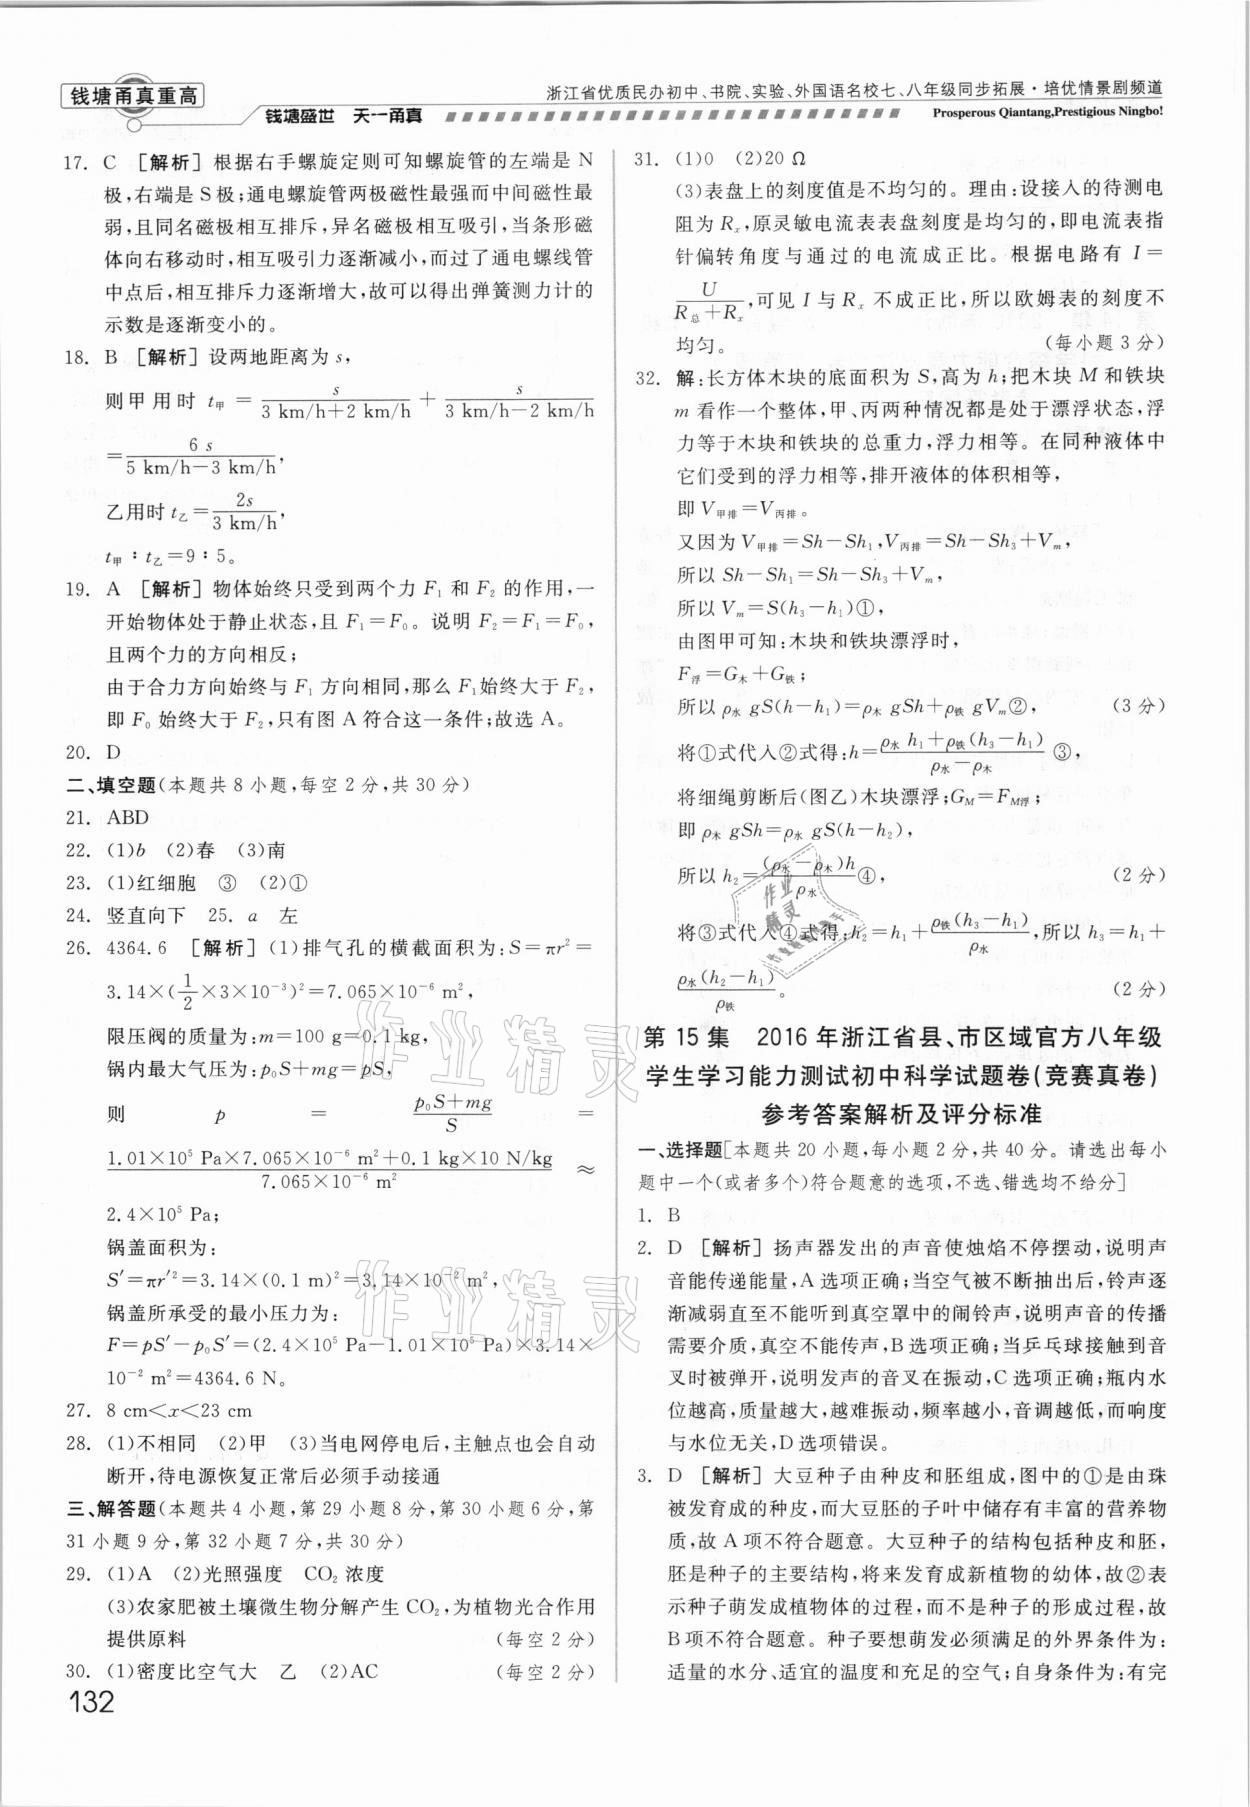 钱塘甬真重高
浙江省优质民办初中、书院、实验、外国语名校七、八年级同步拓展·培优情景剧频道
钱塘盛世 天一甬真
Prosperous Qiantang,Prestigious Ningbo!
17. C [解析] 根据右手螺旋定则可知螺旋管的左端是 N
极,右端是 S 极;通电螺旋管两极磁性最强而中间磁性最
弱,且同名磁极相互排斥,异名磁极相互吸引,当条形磁
体向右移动时,相互吸引力逐渐减小,而过了通电螺线管
中点后,相互排斥力逐渐增大,故可以得出弹簧测力计的
示数是逐渐变小的。
18. B [解析] 设两地距离为 s,
则甲用时 t甲 = s/(3 km/h+2 km/h) + s/(3 km/h−2 km/h)
= 6 s/(5 km/h−3 km/h),
乙用时 t乙 = 2s/(3 km/h),
t甲 : t乙 = 9 : 5。
19. A [解析] 物体始终只受到两个力 F₁ 和 F₂ 的作用,一
开始物体处于静止状态,且 F₁=F₀。说明 F₂=F₁=F₀,
且两个力的方向相反;
由于合力方向始终与 F₁ 方向相同,那么 F₁始终大于 F₂,
即 F₀ 始终大于 F₂,只有图 A 符合这一条件;故选 A。
20. D
二、填空题(本题共 8 小题,每空 2 分,共 30 分)
21. ABD
22. (1)b (2)春 (3)南
23. (1)红细胞 ③ (2)①
24. 竖直向下 25. a 左
26. 4364.6 [解析] (1)排气孔的横截面积为:S=πr²=
3.14×(1/2×3×10⁻³)²=7.065×10⁻⁶ m²,
限压阀的质量为:m=100 g=0.1 kg,
锅内最大气压为:p₀S+mg=pS,
则 p = (p₀S+mg)/S =
(1.01×10⁵ Pa×7.065×10⁻⁶ m²+0.1 kg×10 N/kg)/(7.065×10⁻⁶ m²) ≈
2.4×10⁵ Pa;
锅盖面积为:
S′=πr′²=3.14×(0.1 m)²=3.14×10⁻² m²,
锅盖所承受的最小压力为:
F=pS′−p₀S′=(2.4×10⁵ Pa−1.01×10⁵ Pa)×3.14×
10⁻² m²=4364.6 N。
27. 8 cm<x<23 cm
28. (1)不相同 (2)甲 (3)当电网停电后,主触点也会自动
断开,待电源恢复正常后必须手动接通
三、解答题(本题共 4 小题,第 29 小题 8 分,第 30 小题 6 分,第
31 小题 9 分,第 32 小题 7 分,共 30 分)
29. (1)A (2)光照强度 CO₂ 浓度
(3)农家肥被土壤微生物分解产生 CO₂,为植物光合作用
提供原料 (每空 2 分)
30. (1)密度比空气大 乙 (2)AC (每空 2 分)
132
31. (1)0 (2)20 Ω
(3)表盘上的刻度值是不均匀的。理由:设接入的待测电
阻为 Rₓ,原灵敏电流表表盘刻度是均匀的,即电流表指
针偏转角度与通过的电流成正比。根据电路有 I =
U/(R总+Rₓ),可见 I 与 Rₓ 不成正比,所以欧姆表的刻度不
均匀。 (每小题 3 分)
32. 解:长方体木块的底面积为 S,高为 h;把木块 M 和铁块
m 看作一个整体,甲、丙两种情况都是处于漂浮状态,浮
力等于木块和铁块的总重力,浮力相等。在同种液体中
它们受到的浮力相等,排开液体的体积相等,
即 V甲排=V丙排。
又因为 V甲排=Sh−Sh₁,V丙排=Sh−Sh₃+Vₘ,
所以 Sh−Sh₁=Sh−Sh₃+Vₘ,
所以 Vₘ=S(h₃−h₁)①,
由图甲可知:木块和铁块漂浮时,
F浮=G木+G铁;
所以 ρ水 gS(h−h₁)=ρ木 gSh+ρ铁 gVₘ②, (3 分)
将①式代入②式得:h=(ρ水 h₁+ρ铁(h₃−h₁))/(ρ水−ρ木) ③,
将细绳剪断后(图乙)木块漂浮;G_M=F_M浮;
即 ρ木 gSh=ρ水 gS(h−h₂),
所以 h₂=(ρ水−ρ木)h/ρ水 ④, (2 分)
将③式代入④式得:h₂=h₁+ρ铁(h₃−h₁)/ρ水,所以 h₃=h₁+
ρ水(h₂−h₁)/ρ铁。 (2 分)
第 15 集 2016 年浙江省县、市区域官方八年级
学生学习能力测试初中科学试题卷(竞赛真卷)
参考答案解析及评分标准
一、选择题[本题共 20 小题,每小题 2 分,共 40 分。请选出每小
题中一个(或者多个)符合题意的选项,不选、错选均不给分]
1. B
2. D [解析] 扬声器发出的声音使烛焰不停摆动,说明声
音能传递能量,A 选项正确;当空气被不断抽出后,铃声逐
渐减弱直至不能听到真空罩中的闹铃声,说明声音的传播
需要介质,真空不能传声,B 选项正确;当乒乓球接触到音
叉时被弹开,说明发声的音叉在振动,C 选项正确;瓶内水
位越高,质量越大,越难振动,频率越小,音调越低,而响度
与水位无关,D 选项错误。
3. D [解析] 大豆种子由种皮和胚组成,图中的①是由珠
被发育成的种皮,而大豆胚的子叶中储存有丰富的营养物
质,故 A 项不符合题意。大豆种子的结构包括种皮和胚,
胚是种子的主要结构,将来发育成新植物的幼体,故②表
示种子萌发成植物体的过程,而不是种子的形成过程,故
B 项不符合题意。种子要想萌发必须满足的外界条件为:
适量的水分、适宜的温度和充足的空气;自身条件为:有完
作业精灵
作业精灵
作业精灵